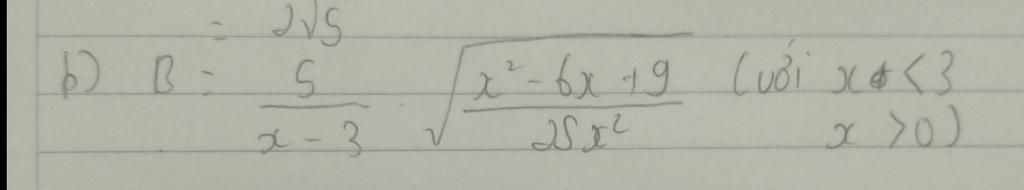 = 2√5
b) B = 5/(x - 3) · √((x² - 6x + 9)/(25x²)) (với x < 3
x > 0)